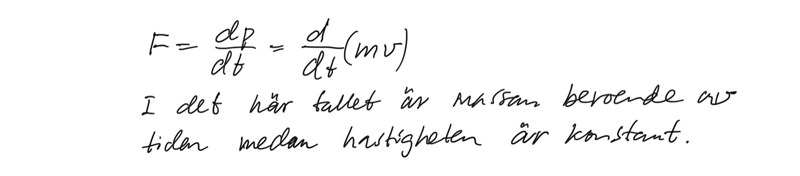 F = dp/dt = d/dt (mv)
I det här fallet är massan beroende av
tiden medan hastigheten är konstant.